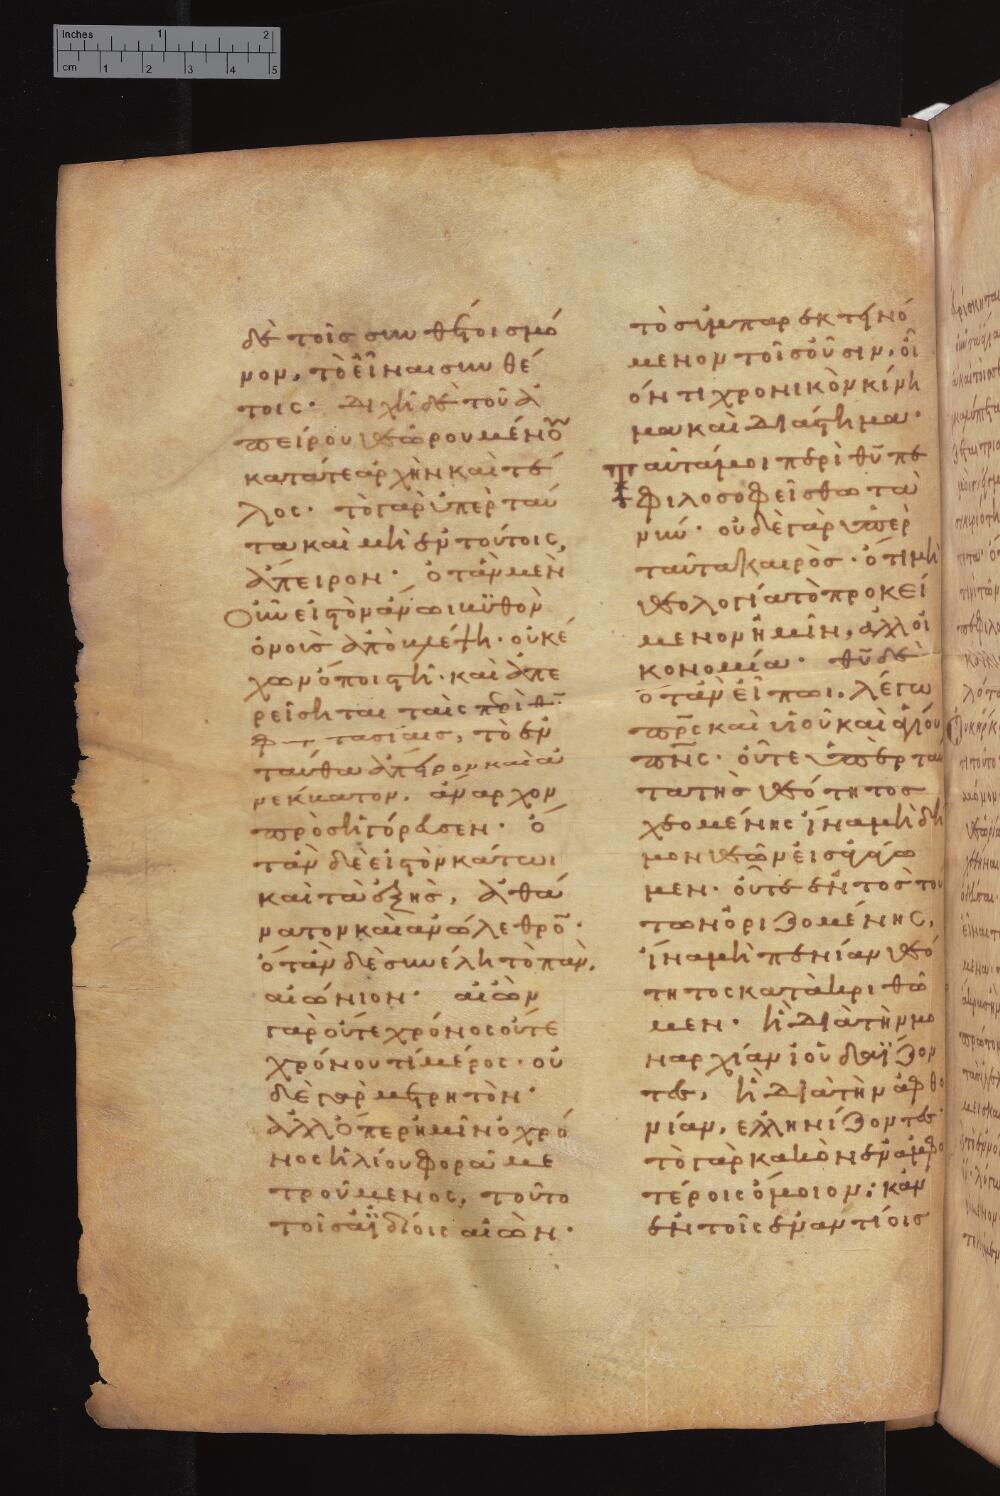 Inches 1 2
cm 1 2 3 4 5
δὲ τοῖς συνθέτοις μό
νον, τὸ εἶναι συνθέ
τοις· διχῆ δὲ τοῦ ἀ
πείρου θεωρουμένου
κατά τε ἀρχὴν καὶ τέ
λος· τὸ γὰρ ὑπὲρ ταύ
τα καὶ μὴ ἐν τούτοις,
ἄπειρον· ὅταν μὲν
οὖν εἰς τὸν ἄνω βυθὸν
ὁ νοῦς ἀποβλέψη· οὐκ ἔ
χων ὅποι στῆ· καὶ ἀπε
ρείσηται ταῖς περὶ θῦ
φαντασίαις, τὸ ἐν
ταύθα ἄπειρον καὶ ἀ
νέκβατον, ἄναρχον
προσηγόρευσεν· ὅ
ταν δὲ εἰς τὸν κάτω
καὶ τὰ ἑξῆς, ἀθά
νατον καὶ ἀνώλεθρον·
ὅταν δὲ συνέλη τὸ πᾶν,
αἰώνιον· αἰὼν
γὰρ οὔτε χρόνος οὔτε
χρόνου τί μέρος· οὐ
δὲ γὰρ μετρητὸν·
ἀλλ' ὅπερ ἡμῖν ὁ χρό
νος ἡλίου φορᾶ με
τρούμενος, τοῦτο
τοῖς ἀϊδίοις αἰὼν·
τὸ συμπαρεκτεινό
μενον τοῖς οὖσιν, οἷ
όν τι χρονικὸν κίνη
μα καὶ διάστημα·
ταῦτά μοι περὶ θῦ πε
φιλοσοφείσθω τὰ
νῦν· οὐδὲ γὰρ ὑπὲρ
ταῦτα καιρὸς· ὅτι μὴ
θεολογία τὸ προκεί
μενον ἡμῖν, ἀλλ' οἰ
κονομία· θῦ δὲ
ὅταν εἴπω, λέγω
πρς καὶ υἱοῦ καὶ ἁγίου
πνς· οὔτε ὑπὲρ ταῦ
τα τῆς θεότητος
χεομένης ἵνα μὴ δῆ
μον θεῶν εἰσαγάγω
μεν· οὔτε ἐντὸς τού
των ὁριζομένης,
ἵνα μὴ πενίαν θεό
τητος κατακριθῶ
μεν· ἢ διὰ τὴν μο
ναρχίαν ἰουδαΐζον
τες, ἢ διὰ τὴν ἀφθο
νίαν, ἑλληνίζοντες·
τὸ γὰρ κακὸν ἐν ἀμφο
τέροις ὅμοιον· κἂν
ἐν τοῖς ἐναντίοις